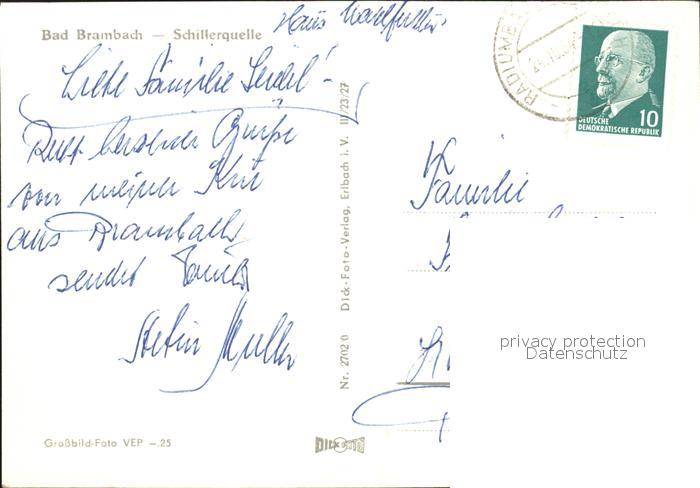 Bad Brambach — Schillerquelle
Haus
Liebe Familie Seidel!
Recht herzliche Grüße
von meiner Kur
aus Brambach
sendet
Müller
Großbild-Foto VEP -.25
DICK FOTO
Nr. 2702 0 Dick-Foto-Verlag, Erlbach i. V. III/23/27
RADIUMB
10
DEUTSCHE
DEMOKRATISCHE REPUBLIK
Familie
privacy protection
Datenschutz